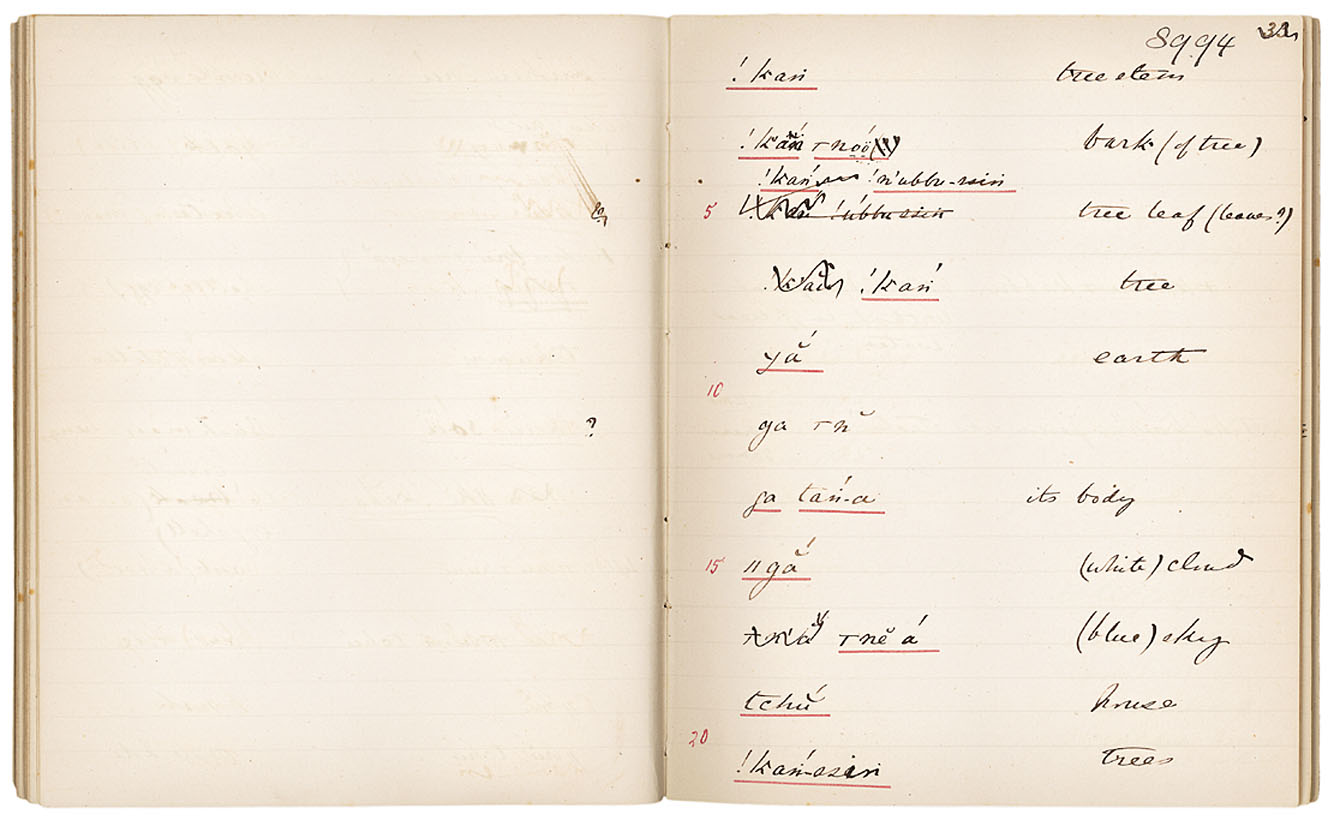 8994
! kań tree stem
! kań ꞇnŏó bark (of tree)
! kań !n'ubbu-ssiń
5 tree leaf (leaves?)
! kań tree
gắ earth
10
? ga ꞇn̆
ga tań-a its body
15 ǁgắ (white) cloud
ꞇnĕ á (blue) sky
tchŭ́ house
20
! kań-asiń trees